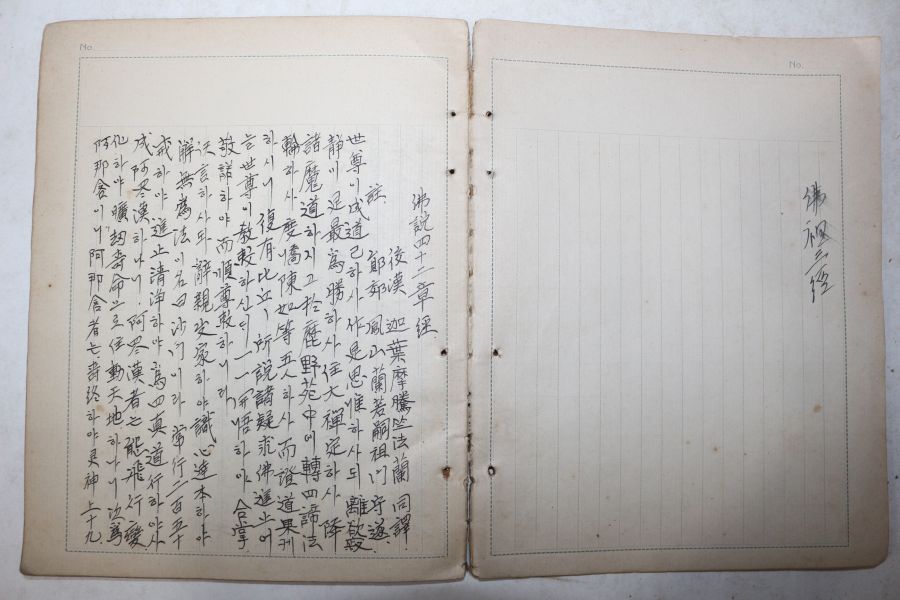 No.
佛祖三經
No.
佛說四十二章經
後漢 迦葉摩騰竺法蘭 同譯
註 鄭郊 鳳山蘭若嗣祖沙門 守遂
世尊이成道已하사作是思惟하사되離欲
靜이是最爲勝하사住大禪定하사降
諸魔道하시고於鹿野苑中에轉四諦法
輪하사度憍陳如等五人하사而證道果케
하시니復有比丘、所說諸疑求佛進止어
늘世尊이敎敕하신대一一開悟하야合掌
敬諾하야而順尊敕하니라
沃言하사되辭親出家하야識心達本하야
解無爲法이名曰沙門이라常行二百五十
戒하야進止淸淨하야爲四真道行하야사
成阿羅漢하나니阿羅漢者는能飛行變
化하야曠劫壽命으로住動天地하나니次爲
阿那含이니阿那含者는壽終하야灵神上十九